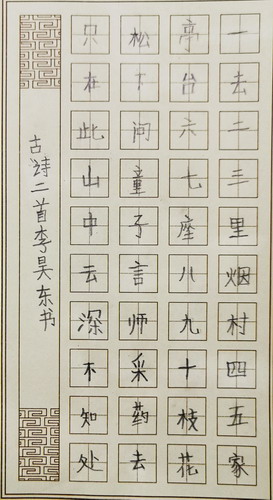 一去二三里烟村四五家
亭台六七座八九十枝花
松下问童子言师采药去
只在此山中云深不知处
古诗二首李昊东书